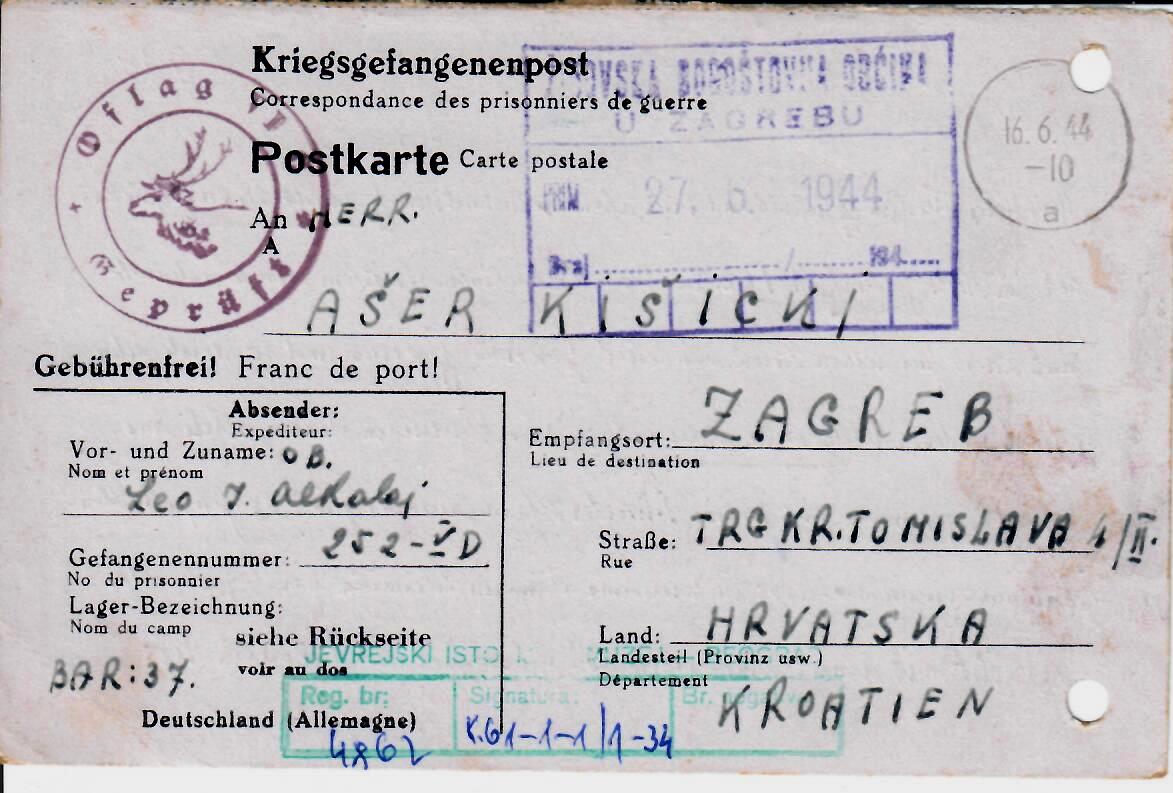 Kriegsgefangenenpost
Correspondance des prisonniers de guerre
Postkarte Carte postale
Oflag
Geprüft
BOGOŠTOVNA OBĆINA
U ZAGREBU
PRIM. 27. 6. 1944
Broj ........ / ........ 194.....
16.6.44
-10
a
An HERR.
A
AŠER KIŠICKI
Gebührenfrei! Franc de port!
Absender:
Expéditeur:
Vor- und Zuname: OB.
Nom et prénom
Leo J. Alkalaj
Gefangenennummer: 252-VD
No du prisonnier
Lager-Bezeichnung:
Nom du camp
siehe Rückseite
voir au dos
BAR:37.
Deutschland (Allemagne)
Empfangsort: ZAGREB
Lieu de destination
Straße: TRG KR.TOMISLAVA 4/II.
Rue
Land: HRVATSKA
Landesteil (Provinz usw.)
Département
KROATIEN
JEVREJSKI
BEOGRAD
Reg. br: Signatura:
4862 K.61-1-1/1-34